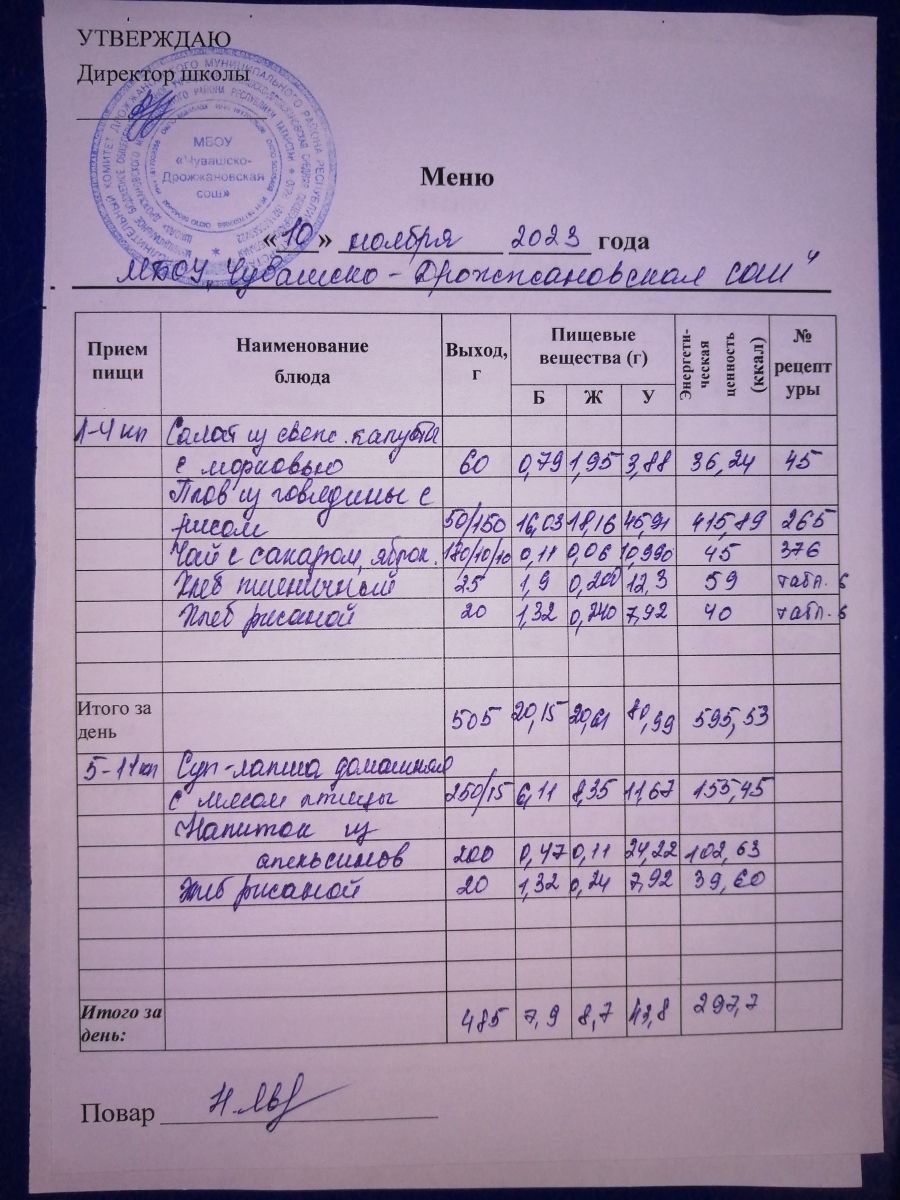 УТВЕРЖДАЮ
Директор школы
МБОУ
«Чувашско-
Дрожжановская
сош»
Меню
«10» ноября 2023 года
МБОУ „Чувашско-Дрожжановская сош"
Прием пищи Наименование блюда Выход, г Пищевые вещества (г) Б Ж У Энергети-ческая ценность (ккал) № рецептуры
1-4 кл Салат из свеж. капусты
с морковью 60 0,79 1,95 3,88 36,24 45
Плов из говядины с
рисом 50/150 16,03 18,16 45,91 415,89 265
Чай с сахаром, яблок. 180/10/10 0,11 0,06 10,990 45 376
Хлеб пшеничный 25 1,9 0,200 12,3 59 табл. 6
Хлеб ржаной 20 1,32 0,240 7,92 40 табл. 6
Итого за
день 505 20,15 20,61 80,99 595,53
5-11 кл Суп-лапша домашняя
с мясом птицы 250/15 6,11 8,35 11,67 155,45
Напиток из
апельсинов 200 0,47 0,11 24,22 102,63
Хлеб ржаной 20 1,32 0,24 7,92 39,60
Итого за
день: 485 7,9 8,7 43,8 297,7
Повар